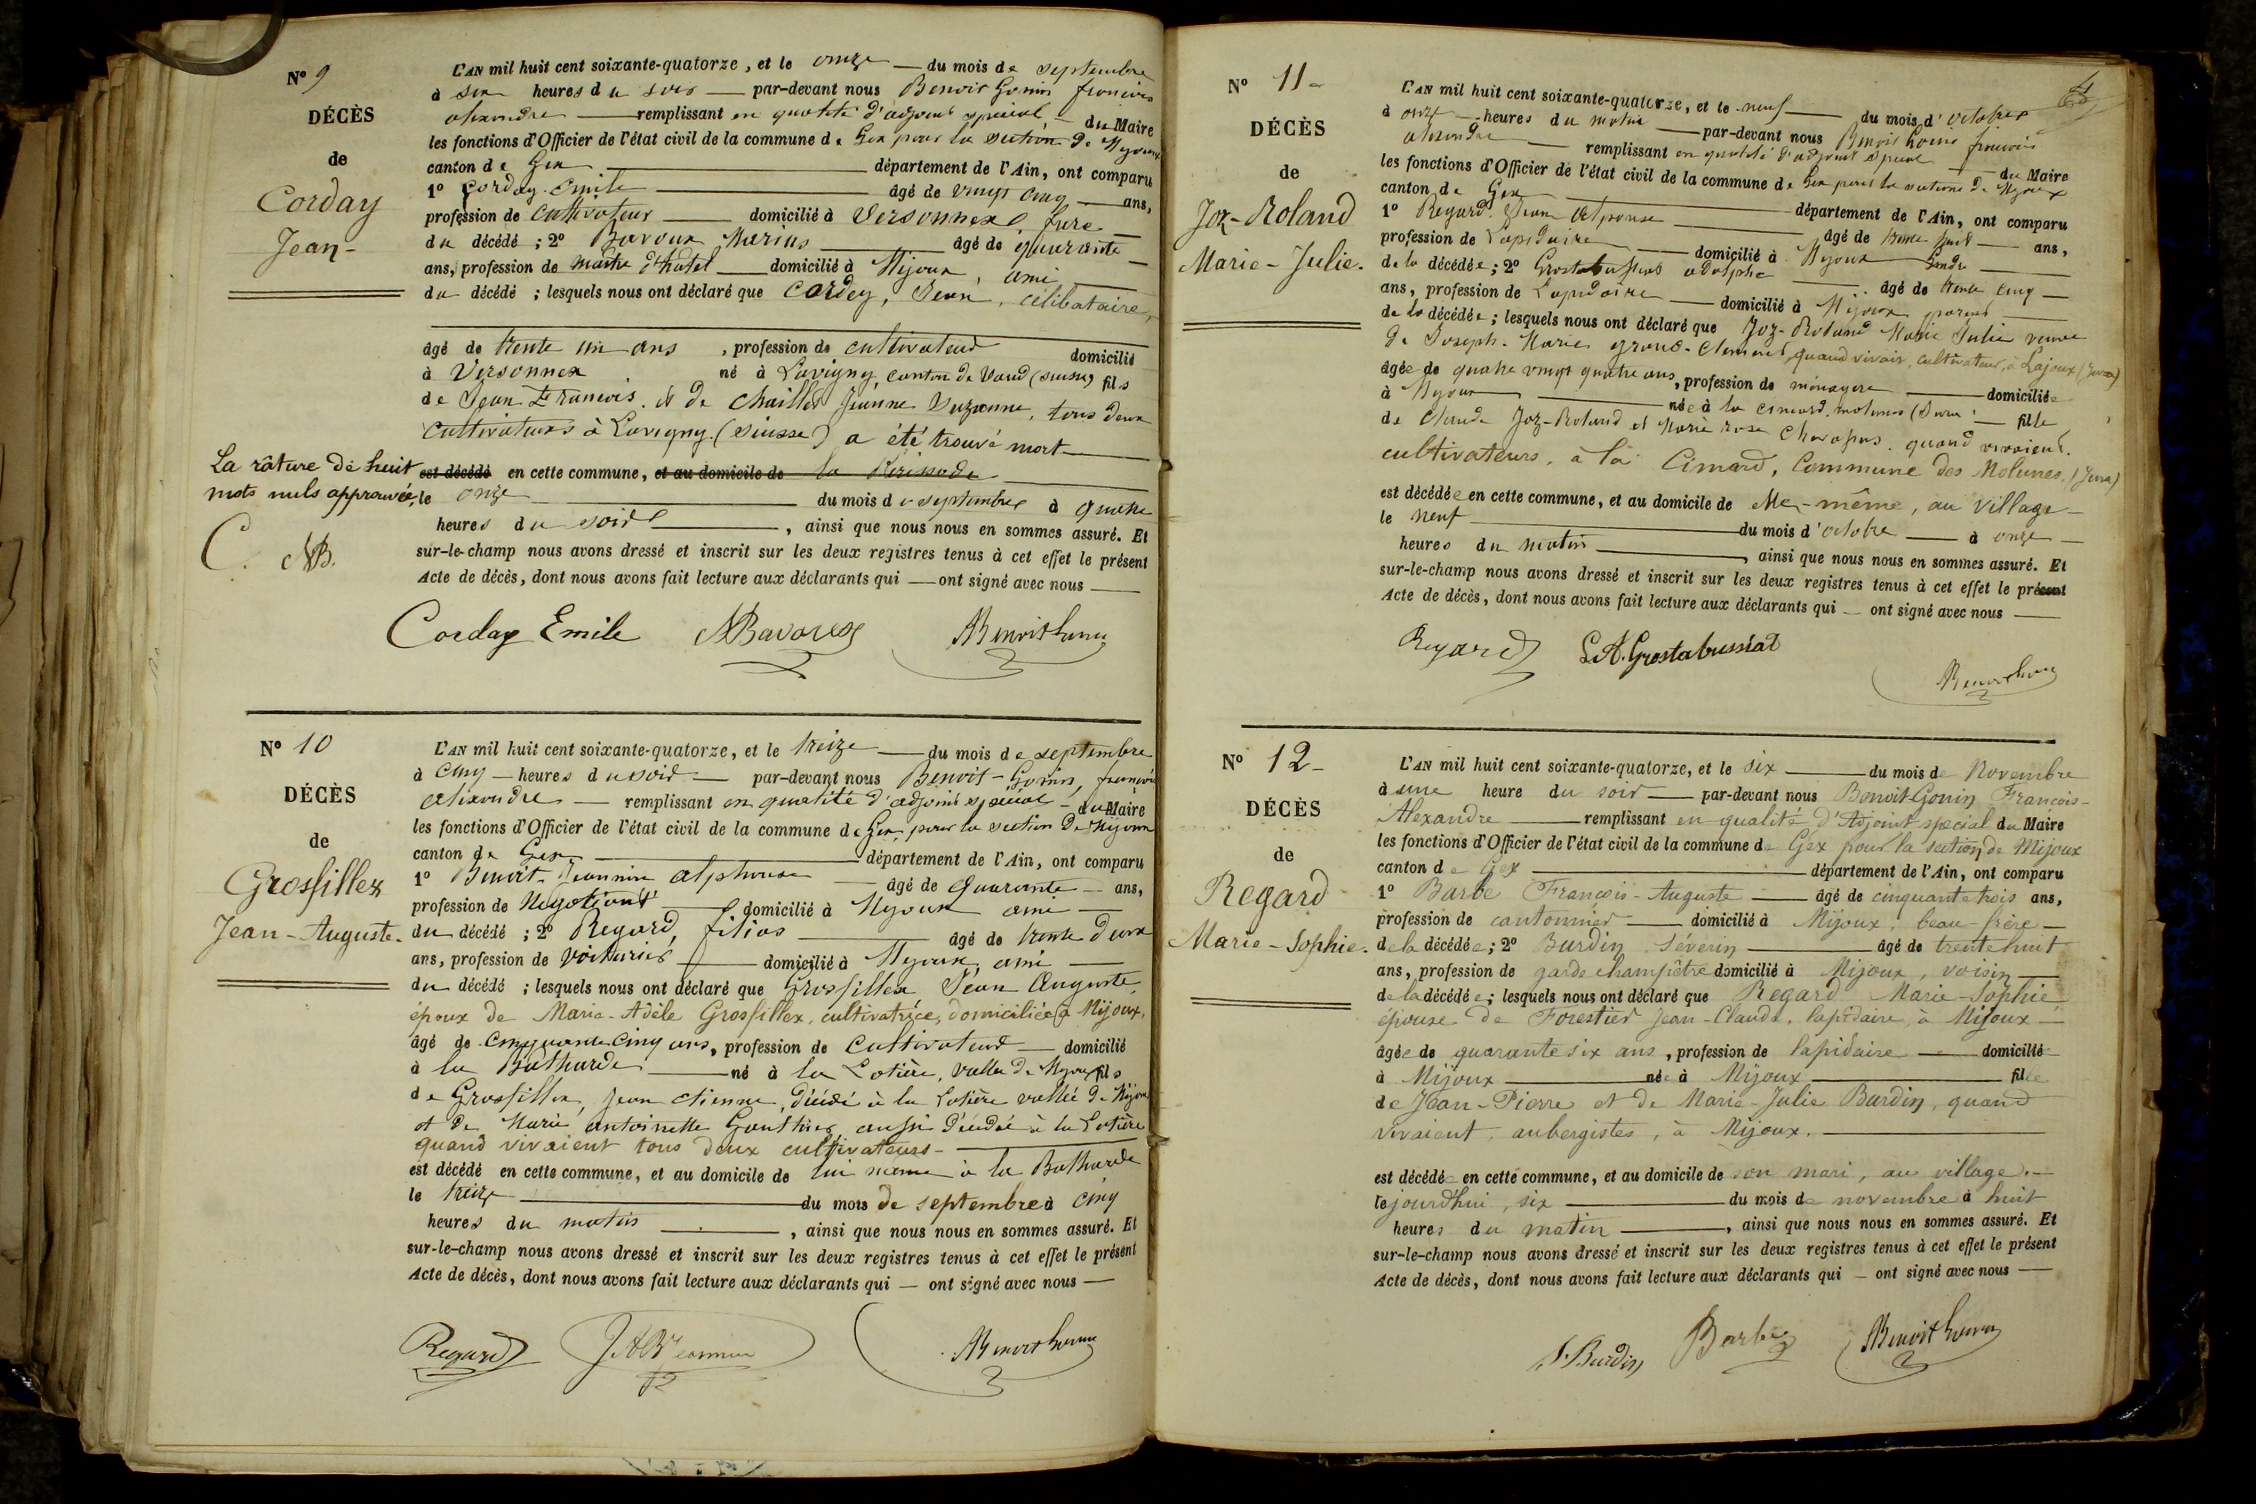 Nº 9
DÉCÈS
de
Corday
Jean-
L'AN mil huit cent soixante-quatorze, et le onze — du mois de septembre
à six heures du soir — par-devant nous Benoit Gonin françois
alexandre — remplissant en qualité d'adjoint spécial — du Maire
les fonctions d'Officier de l'état civil de la commune de Gex pour la section de Mijoux
canton de Gex — département de l'Ain, ont comparu
1º Corday Emile — âgé de vingt cinq — ans,
profession de cultivateur — domicilié à Versonnex, frère —
du décédé ; 2º Bavoux Marius — âgé de quarante —
ans, profession de maître d'hôtel — domicilié à Mijoux, ami —
du décédé ; lesquels nous ont déclaré que Cordey, Jean, célibataire,
âgé de trente un ans , profession de cultivateur domicilié
à Versonnex né à Lavigny, canton de Vaud (suisse) fils
de Jean François et de Chaillet Jeanne Suzanne, tous deux
cultivateurs à Lavigny (suisse) a été trouvé mort —
La râture de huit
mots nuls approuvée,
C. MB.
est décédé en cette commune, et au domicile de la
le onze — du mois de septembre à quatre
heures du soir — , ainsi que nous nous en sommes assuré. Et
sur-le-champ nous avons dressé et inscrit sur les deux registres tenus à cet effet le présent
Acte de décès, dont nous avons fait lecture aux déclarants qui — ont signé avec nous —
Corday Emile MBavoux ABenoitGonin
Nº 10
DÉCÈS
de
Grosfillex
Jean-Auguste-
L'AN mil huit cent soixante-quatorze, et le treize — du mois de septembre
à cinq — heures du soir — par-devant nous Benoit-Gonin, françois
alexandre — remplissant en qualité d'adjoint spécial — du Maire
les fonctions d'Officier de l'état civil de la commune de Gex pour la section de Mijoux
canton de Gex — département de l'Ain, ont comparu
1º Benoit-Jeannin alphonse — âgé de quarante — ans,
profession de Négotiant — domicilié à Mijoux ami —
du décédé ; 2º Regard, félix — âgé de trente deux
ans, profession de voiturier — domicilié à Mijoux, ami —
du décédé ; lesquels nous ont déclaré que Grosfillex Jean Auguste,
époux de Marie-Adèle Grosfillex, cultivatrice, domiciliée à Mijoux,
âgé de cinquante cinq ans, profession de cultivateur — domicilié
à la Batharde — né à la Lotière, vallée de Mijoux fils
de Grosfillex, Jean etienne, décédé à la Lotière vallée de Mijoux
et de Marie antoinette Gauthier aussi décédée à la Lotière
quand vivaient tous deux cultivateurs —
est décédé en cette commune, et au domicile de lui même à la Batharde
le treize — du mois de septembre à cinq
heures du matin — , ainsi que nous nous en sommes assuré. Et
sur-le-champ nous avons dressé et inscrit sur les deux registres tenus à cet effet le présent
Acte de décès, dont nous avons fait lecture aux déclarants qui — ont signé avec nous —
Regard JABJeannin ABenoitGonin
Nº 11-
DÉCÈS
de
Joz-Roland
Marie-Julie.
L'AN mil huit cent soixante-quatorze, et le neuf — du mois d'octobre
à onze — heures du matin — par-devant nous Benoit Gonin françois
alexandre — remplissant en qualité d'adjoint spécial — du Maire
les fonctions d'Officier de l'état civil de la commune de Gex pour la section de Mijoux
canton de Gex — département de l'Ain, ont comparu
1º Regard Jean Alphonse — âgé de trente huit — ans,
profession de Lapidaire — domicilié à Mijoux Gendre —
de la décédée ; 2º Grostabussiat adolphe — âgé de trente cinq —
ans, profession de Lapidaire — domicilié à Mijoux parent —
de la décédée ; lesquels nous ont déclaré que Joz-Roland Marie Julie veuve
de Joseph-Marie grand-Clement, quand vivait, cultivateur, à Lajoux (Jura)
âgée de quatre vingt quatre ans, profession de ménagère — domiciliée
à Mijoux — née à la cimard, molunes (Jura) — fille
de Claude Joz-Roland et Marie rose Chavapus quand vivaient
cultivateurs, à la Cimard, Commune des Molunes. (Jura)
est décédée en cette commune, et au domicile de elle-même, au village —
le neuf — du mois d'octobre — à onze —
heures du matin — , ainsi que nous nous en sommes assuré. Et
sur-le-champ nous avons dressé et inscrit sur les deux registres tenus à cet effet le présent
Acte de décès, dont nous avons fait lecture aux déclarants qui — ont signé avec nous —
Regard L.A.Grostabussiat
ABenoitGonin
Nº 12-
DÉCÈS
de
Regard
Marie-Sophie.
L'AN mil huit cent soixante-quatorze, et le six — du mois de Novembre
à une heure du soir — par-devant nous Benoit-Gonin François-
Alexandre — remplissant en qualité d'Adjoint spécial du Maire
les fonctions d'Officier de l'état civil de la commune de Gex pour la section de Mijoux
canton de Gex — département de l'Ain, ont comparu
1º Barbe François-Auguste — âgé de cinquante trois ans,
profession de cantonnier — domicilié à Mijoux, beau-frère —
de la décédée ; 2º Burdin Séverin — âgé de trente huit
ans, profession de garde champêtre domicilié à Mijoux, voisin —
de la décédée ; lesquels nous ont déclaré que Regard Marie-Sophie
épouse de Forestier Jean-Claude, lapidaire, à Mijoux —
âgée de quarante six ans, profession de lapidaire — domiciliée
à Mijoux — née à Mijoux — fille
de Jean-Pierre et de Marie-Julie Burdin, quand
vivaient, aubergistes, à Mijoux. —
est décédée en cette commune, et au domicile de son mari, au village. —
le jourd'hui, six — du mois de novembre à huit
heures du matin — , ainsi que nous nous en sommes assuré. Et
sur-le-champ nous avons dressé et inscrit sur les deux registres tenus à cet effet le présent
Acte de décès, dont nous avons fait lecture aux déclarants qui — ont signé avec nous —
S.Burdin Barbe ABenoitGonin